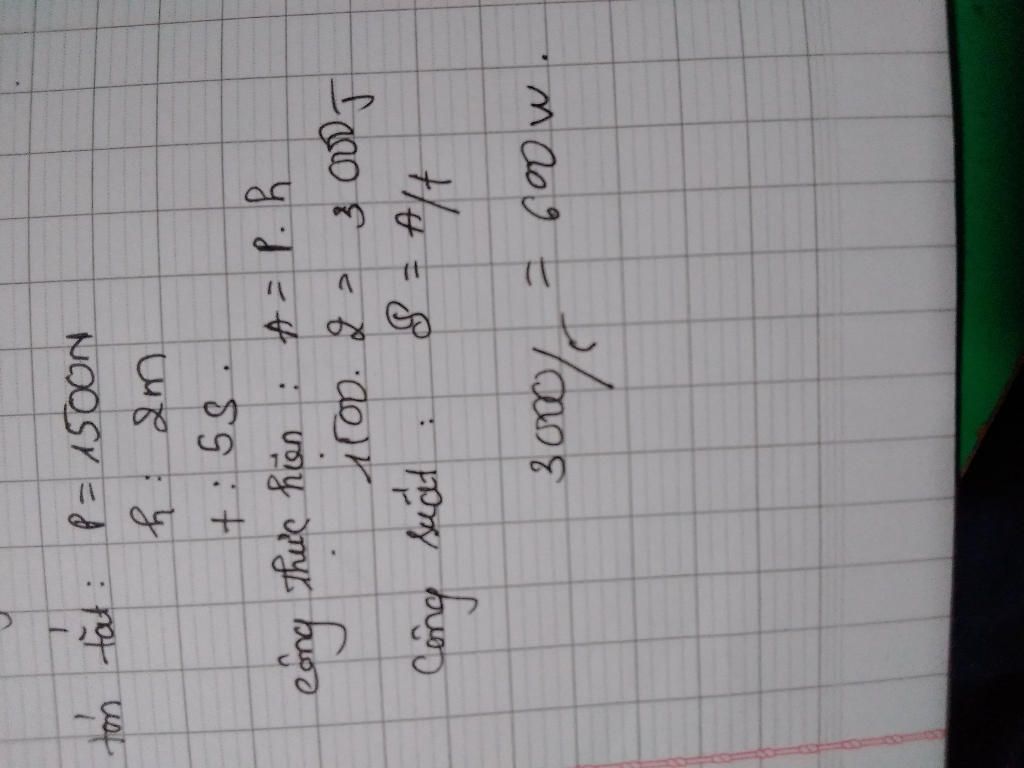 tóm tắt : P = 1500N
h : 2m
t : 5s.
công thực hiện : A = P.h
1500. 2 = 3000J
Công suất : P = A/t
3000/5 = 600 w.